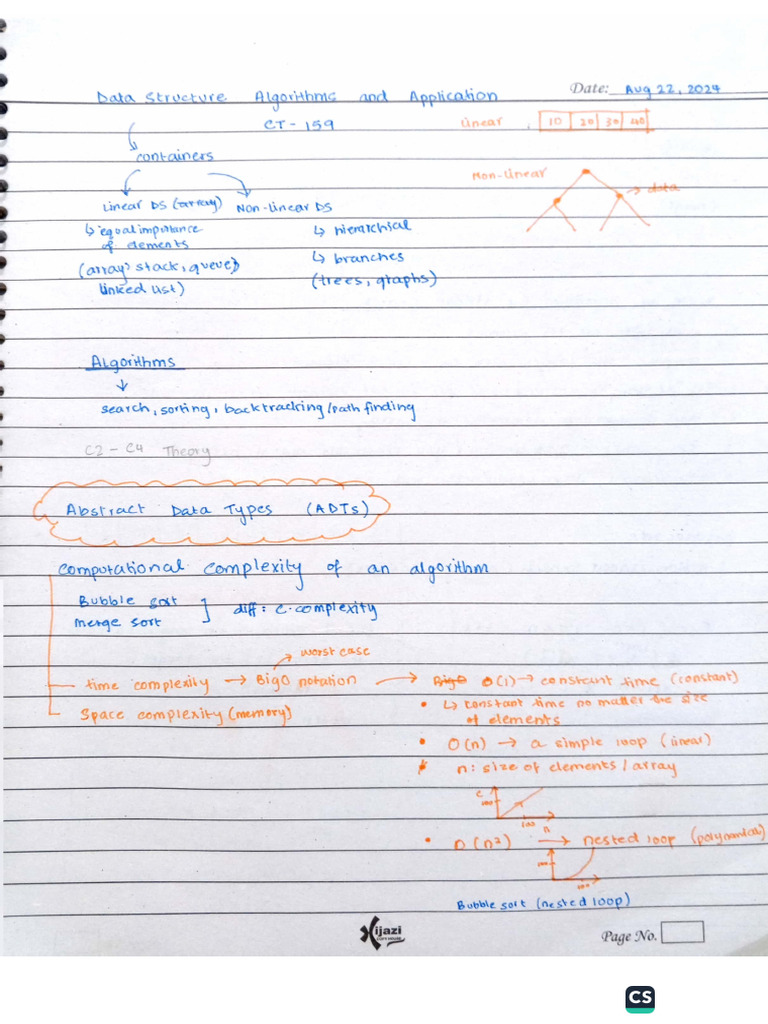 Date: Aug 22, 2024
Data Structure Algorithms and Application
CT-159
linear 10 20 30 40
containers
Non-linear
data
Linear DS (array) Non-linear DS
↳ equal importance of elements
(array, stack, queue, linked list)
↳ hierarchical
↳ branches
(trees, graphs)
Algorithms
search, sorting, backtracking/path finding
C2 - C4 Theory
Abstract Data Types (ADTs)
Computational complexity of an algorithm
Bubble sort
merge sort ] diff: c.complexity
worst case
time complexity → BigO notation → BigO O(1) → constant time (constant)
Space complexity (memory)
• ↳ constant time no matter the size
of elements
• O(n) → a simple loop (linear)
* n: size of elements/array
c
100
100
n
• O(n²) → nested loop (polynomial)
100
100
Bubble sort (nested loop)
Hijazi
Page No.
CS